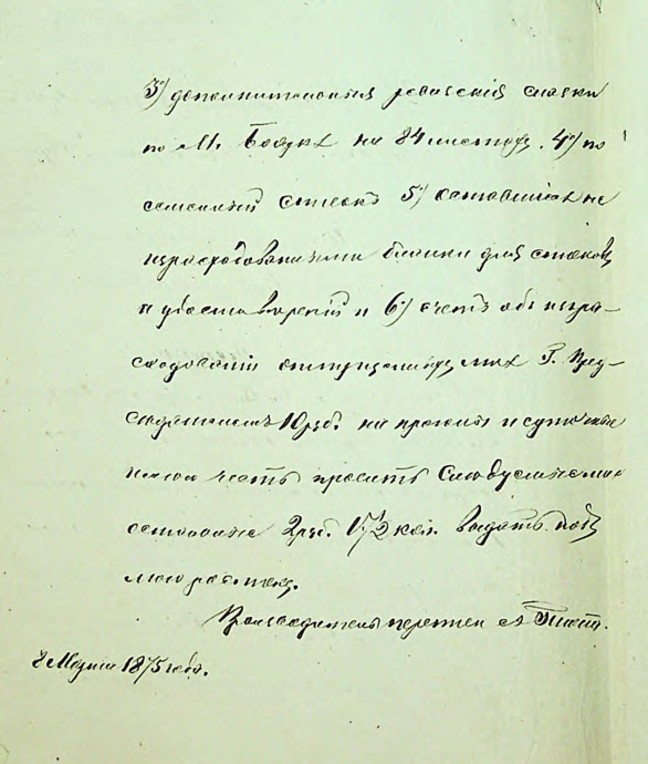 3) дополнительныя ревизскія сказки
по М. Боярке на 84 листахъ. 4) по
семейный списокъ 5) оставшіяся не
израсходованными бланки для списковъ
и удостоверений и 6) счетъ объ изра-
сходованіи отпущенныхъ мнѣ Г. Пред-
седателемъ 10 руб. на прогоны и суточные
имею честь просить следуемыя мнѣ
остальные 2 руб. 1 1/2 коп. выдать подъ
мою росписку.
Производитель переписи
8 Марта 1875 года.